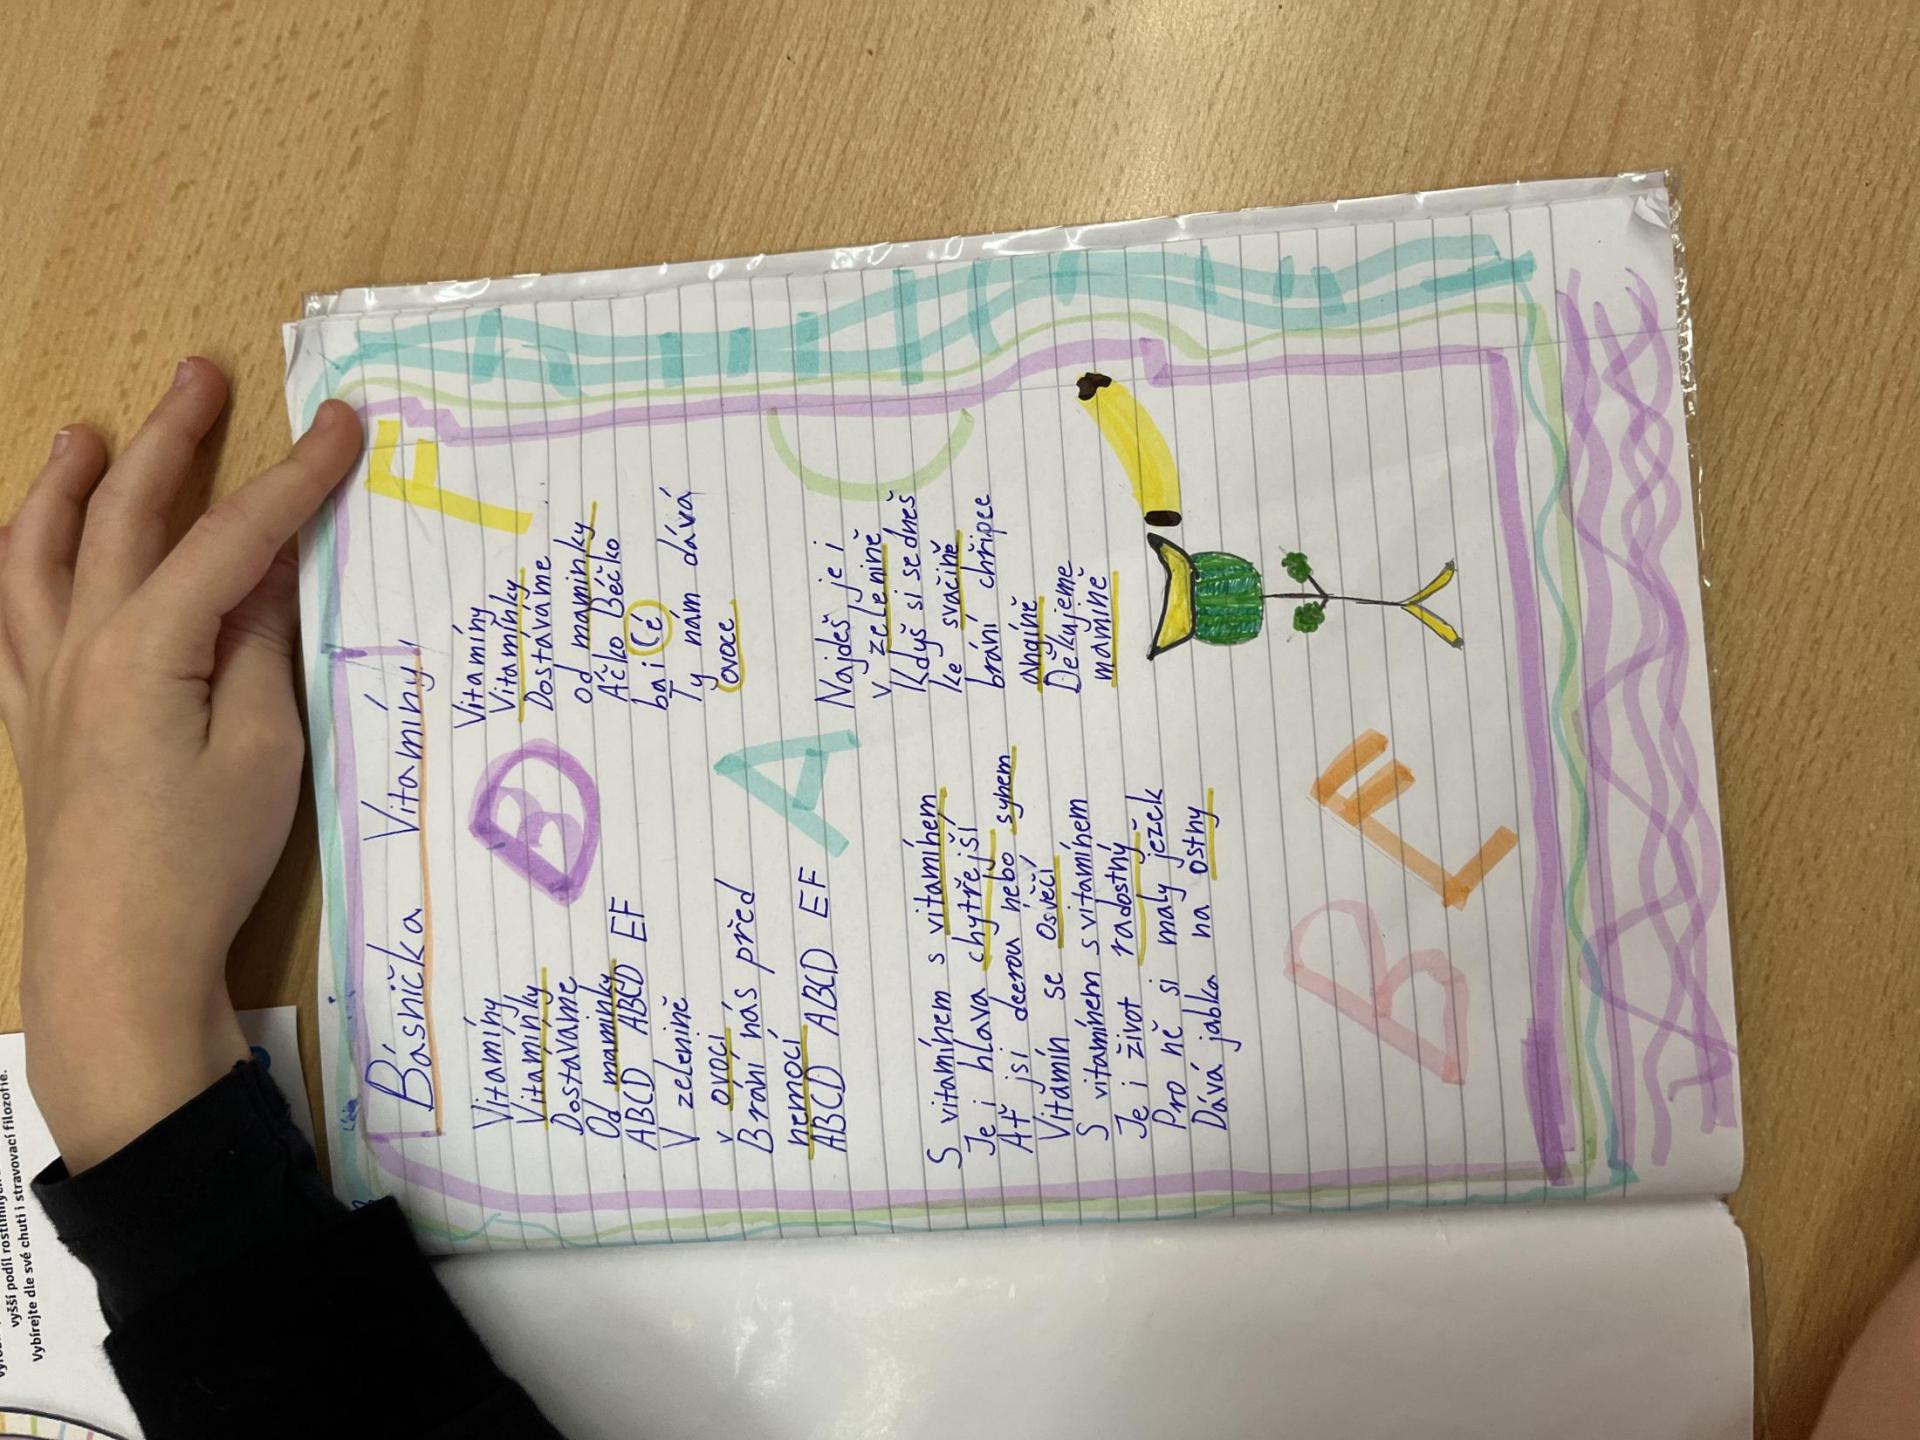 Básnička Vitamíny!
Vitamíny
Vitamínky
Dostáváme
Od maminky
ABCD ABCD EF
V zelenině
v ovoci
Brání nás před
nemocí
ABCD ABCD EF
S vitamínem s vitamínem
Je i hlava chytřejší
Ať jsi dcerou nebo synem
Vitamín se osvěčí
S vitamínem s vitamínem
Je i život radostný
Pro ně si malý ježek
Dává jabka na ostny
Vitamíny
Vitamínky
Dostáváme
od maminky
Áčko Béčko
ba i Cé
Ty nám dává
ovoce
Najdeš je i
v zelenině
Když si se dneš
ke svačině
brání chřipce
angíně
Děkujeme
mamině
F
B
A
C
B
E
vyšší podíl rostlinných
Vybírejte dle své chuti i stravovací filozofie.